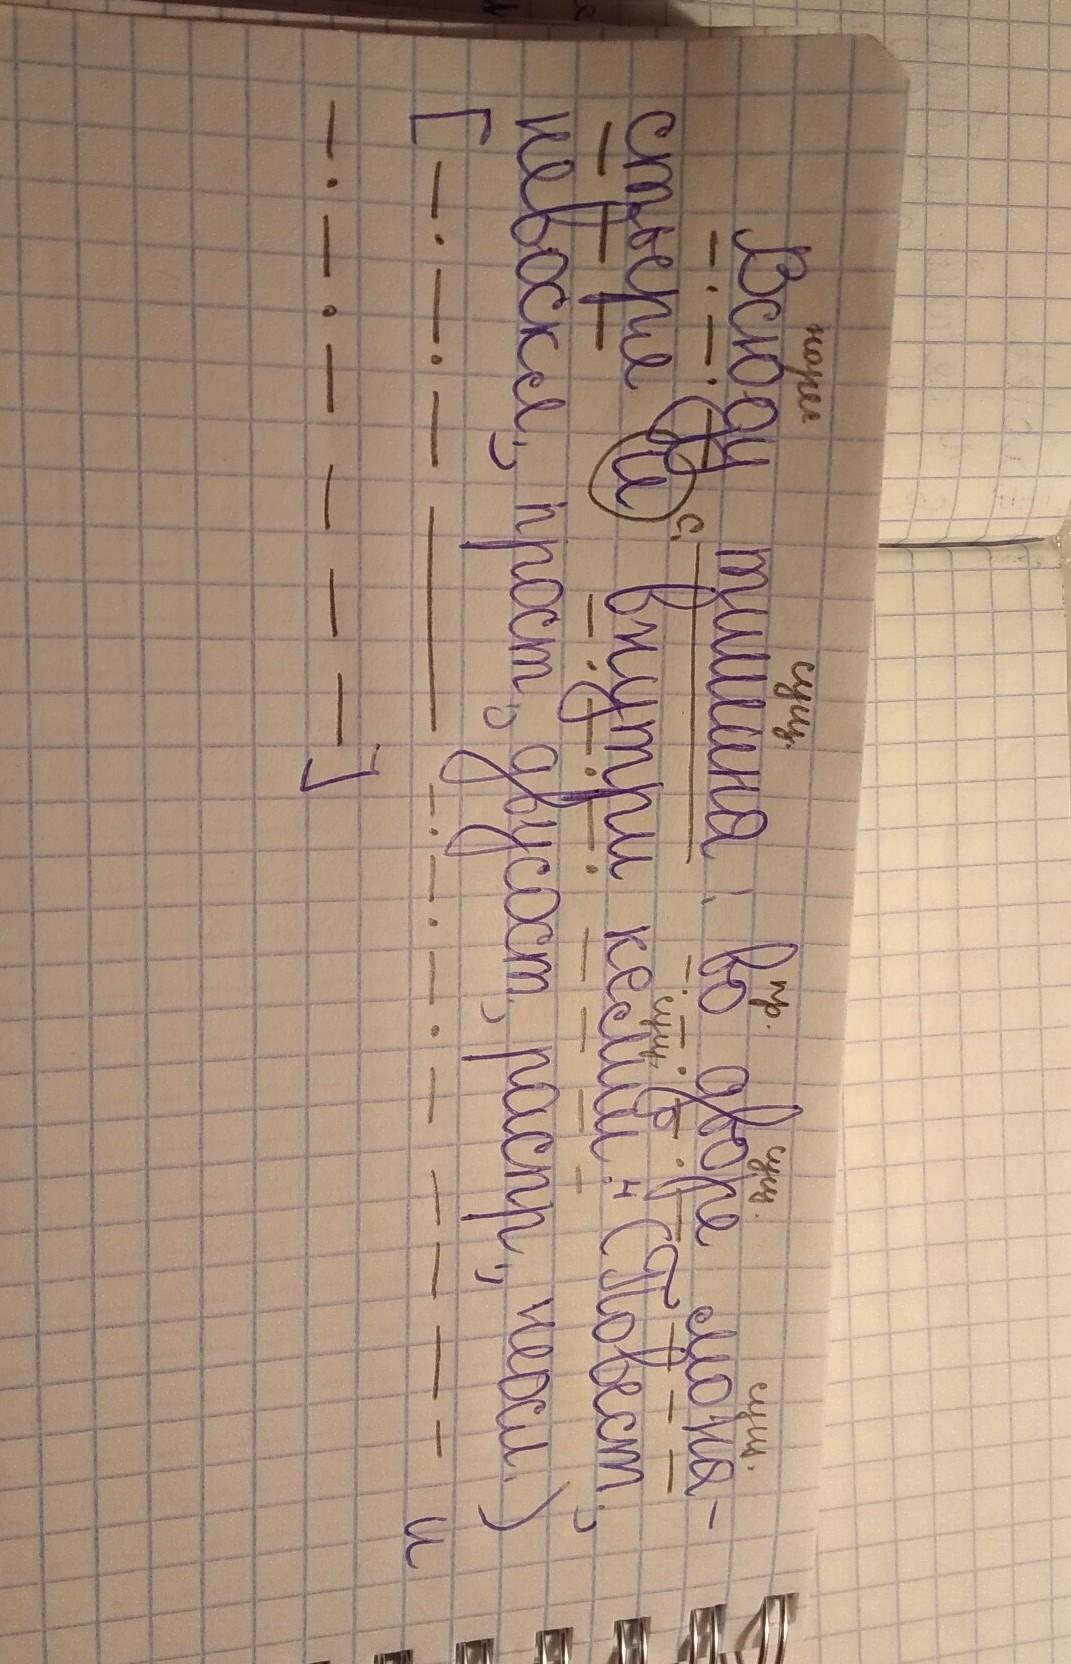 нареч. сущ. пр. сущ. сущ.
Всюду тишина: во дворе мона-
с. сущ.
стыре и внутри келий.⁴ (Повест.,
невоскл., прост., двусост., распр., неосл.)
[ и
]